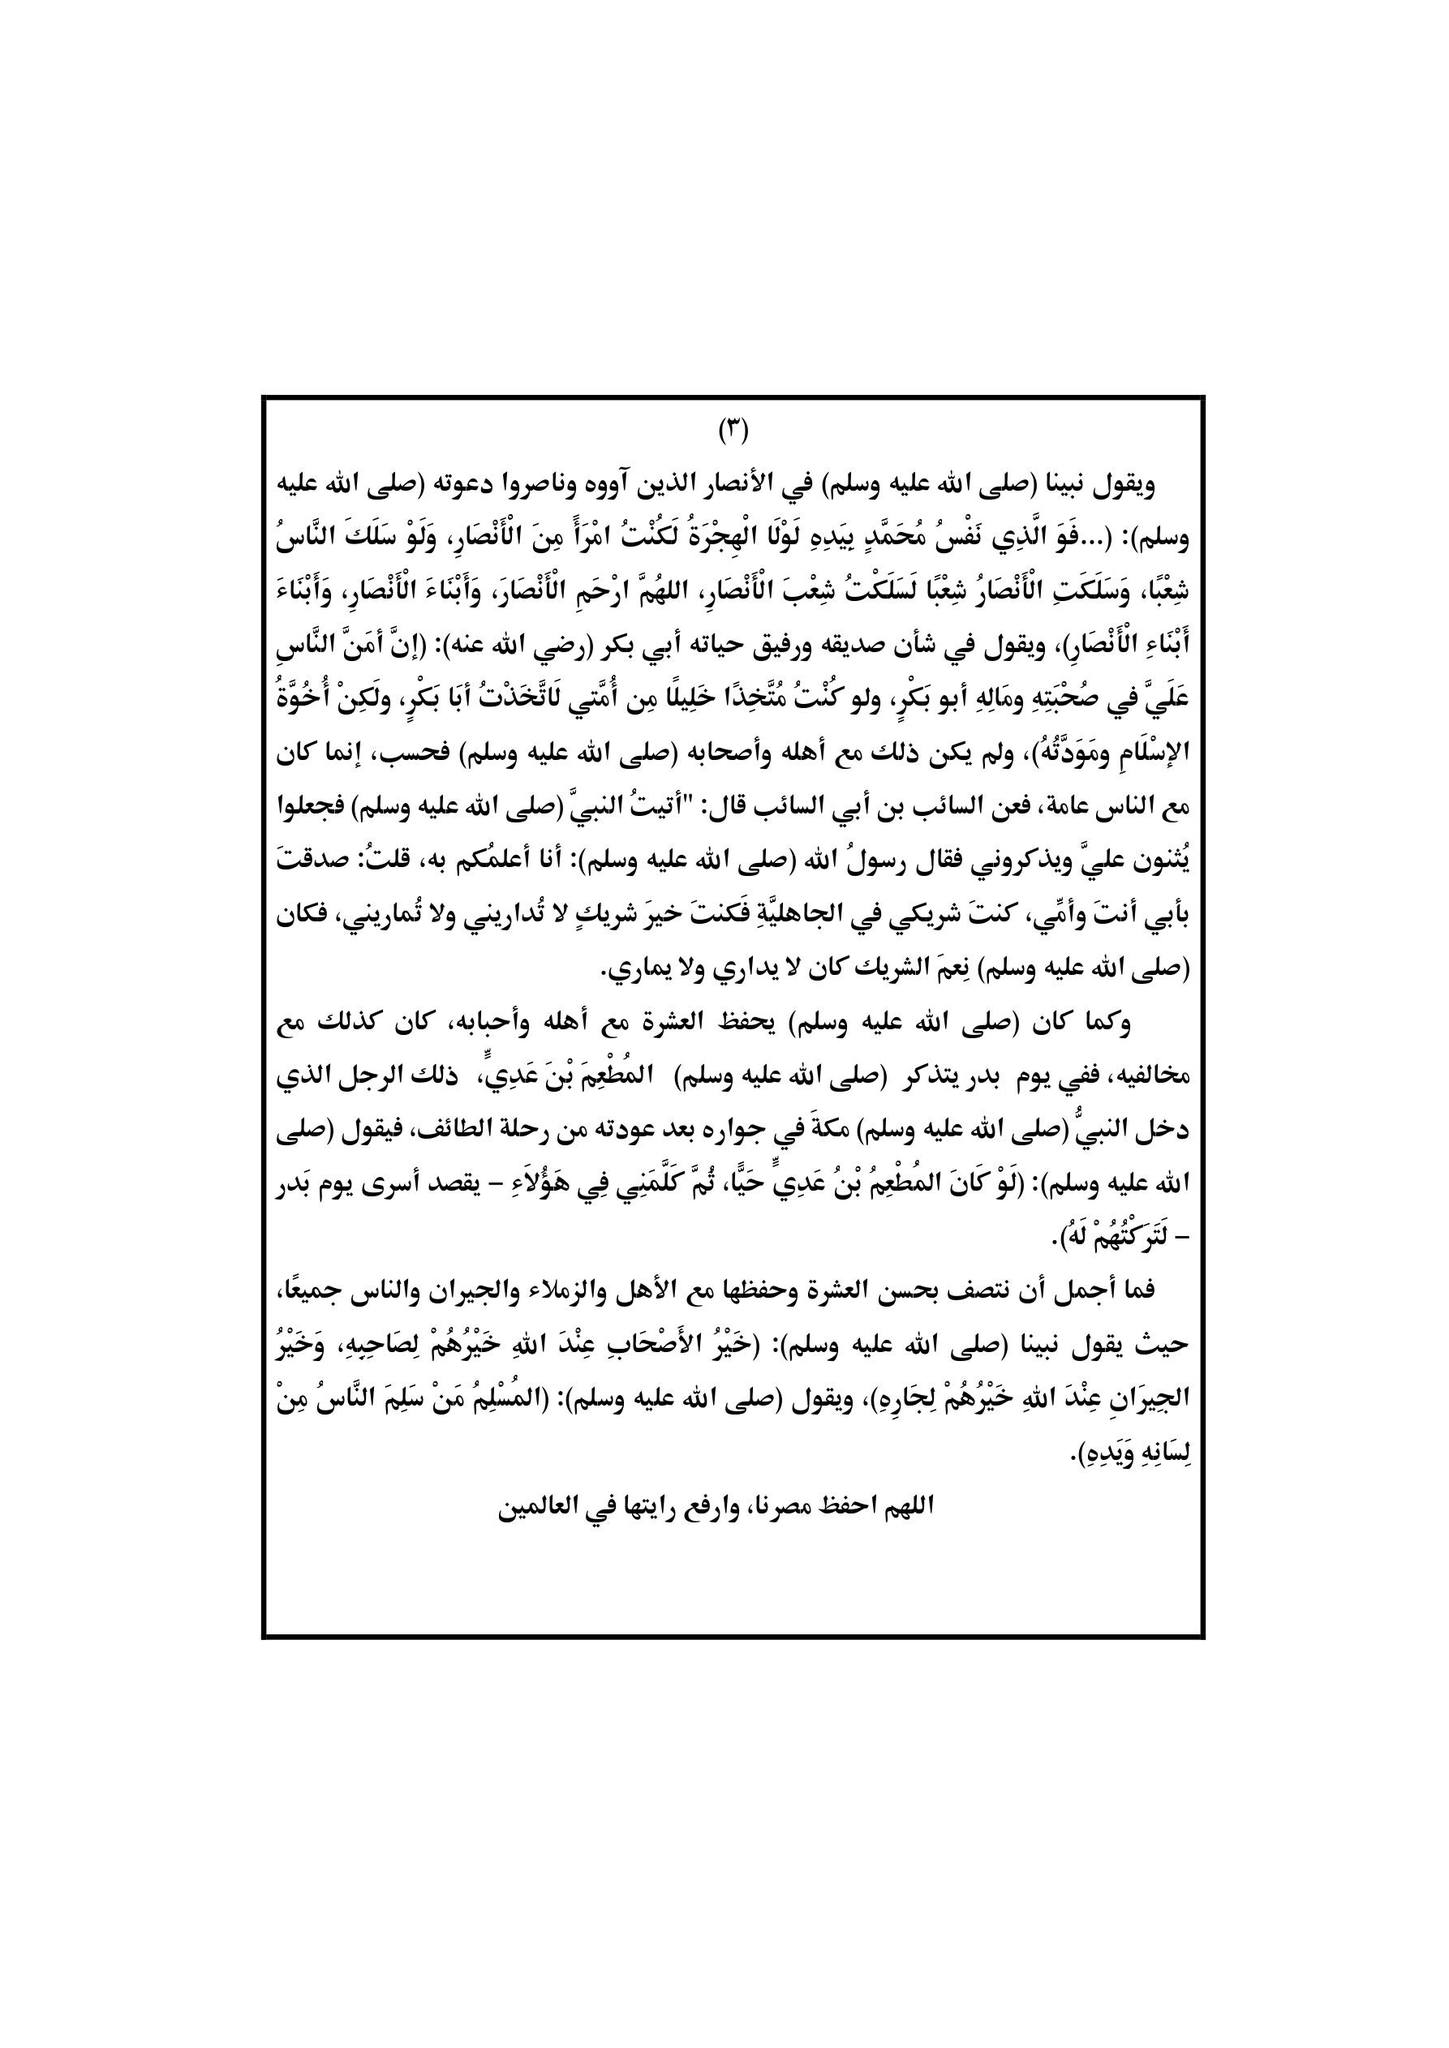 (٣)
ويقول نبينا (صلى الله عليه وسلم) في الأنصار الذين آووه وناصروا دعوته (صلى الله عليه
وسلم): (...فَوَ الَّذِي نَفْسُ مُحَمَّدٍ بِيَدِهِ لَوْلَا الْهِجْرَةُ لَكُنْتُ امْرَأً مِنَ الْأَنْصَارِ، وَلَوْ سَلَكَ النَّاسُ
شِعْبًا، وَسَلَكَتِ الْأَنْصَارُ شِعْبًا لَسَلَكْتُ شِعْبَ الْأَنْصَارِ، اللهُمَّ ارْحَمِ الْأَنْصَارَ، وَأَبْنَاءَ الْأَنْصَارِ، وَأَبْنَاءَ
أَبْنَاءِ الْأَنْصَارِ)، ويقول في شأن صديقه ورفيق حياته أبي بكر (رضي الله عنه): (إنَّ أمَنَّ النَّاسِ
عَلَيَّ في صُحْبَتِهِ ومَالِهِ أبو بَكْرٍ، ولو كُنْتُ مُتَّخِذًا خَلِيلًا مِن أُمَّتي لَاتَّخَذْتُ أبَا بَكْرٍ، ولَكِنْ أُخُوَّةُ
الإسْلَامِ ومَوَدَّتُهُ)، ولم يكن ذلك مع أهله وأصحابه (صلى الله عليه وسلم) فحسب، إنما كان
مع الناس عامة، فعن السائب بن أبي السائب قال: "أتيتُ النبيَّ (صلى الله عليه وسلم) فجعلوا
يُثنون عليَّ ويذكروني فقال رسولُ الله (صلى الله عليه وسلم): أنا أعلمُكم به، قلتُ: صدقتَ
بأبي أنتَ وأمِّي، كنتَ شريكي في الجاهليَّةِ فَكنتَ خيرَ شريكٍ لا تُداريني ولا تُماريني، فكان
(صلى الله عليه وسلم) نِعمَ الشريك كان لا يداري ولا يماري.
وكما كان (صلى الله عليه وسلم) يحفظ العشرة مع أهله وأحبابه، كان كذلك مع
مخالفيه، ففي يوم بدر يتذكر (صلى الله عليه وسلم) المُطْعِمَ بْنَ عَدِيٍّ، ذلك الرجل الذي
دخل النبيُّ (صلى الله عليه وسلم) مكةَ في جواره بعد عودته من رحلة الطائف، فيقول (صلى
الله عليه وسلم): (لَوْ كَانَ المُطْعِمُ بْنُ عَدِيٍّ حَيًّا، ثُمَّ كَلَّمَنِي فِي هَؤُلاَءِ – يقصد أسرى يوم بَدر
– لَتَرَكْتُهُمْ لَهُ).
فما أجمل أن نتصف بحسن العشرة وحفظها مع الأهل والزملاء والجيران والناس جميعًا،
حيث يقول نبينا (صلى الله عليه وسلم): (خَيْرُ الأَصْحَابِ عِنْدَ اللهِ خَيْرُهُمْ لِصَاحِبِهِ، وَخَيْرُ
الجِيرَانِ عِنْدَ اللهِ خَيْرُهُمْ لِجَارِهِ)، ويقول (صلى الله عليه وسلم): (المُسْلِمُ مَنْ سَلِمَ النَّاسُ مِنْ
لِسَانِهِ وَيَدِهِ).
اللهم احفظ مصرنا، وارفع رايتها في العالمين